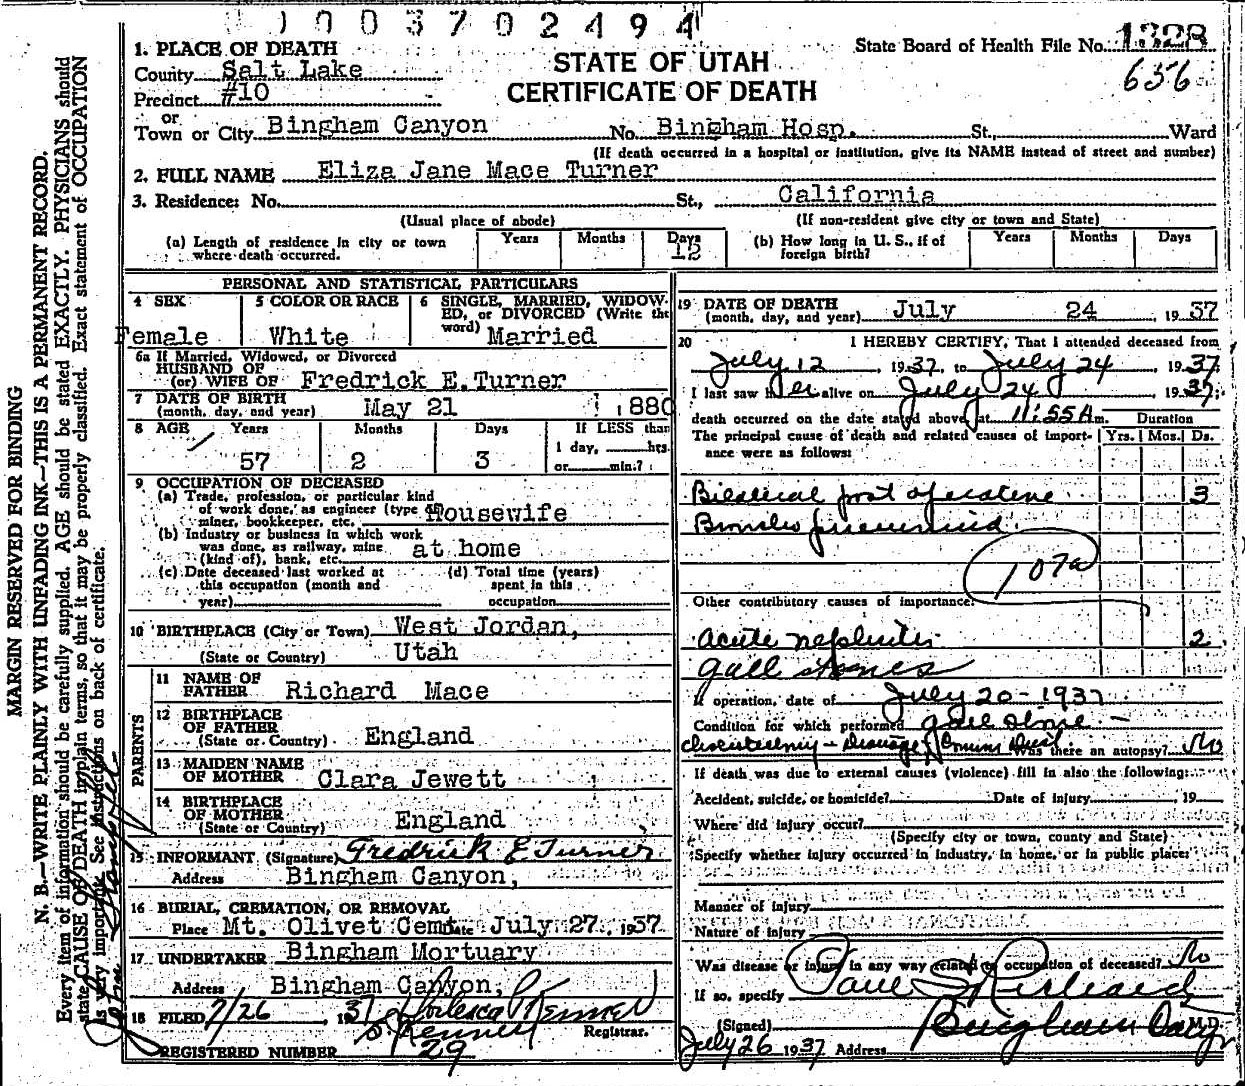 1003702494
1. PLACE OF DEATH
County Salt Lake
Precinct #10
or
Town or City Bingham Canyon No. Bingham Hosp. St., Ward
STATE OF UTAH
CERTIFICATE OF DEATH
State Board of Health File No. 1328
636
(If death occurred in a hospital or institution, give its NAME instead of street and number)
2. FULL NAME Eliza Jane Mace Turner
3. Residence: No. St., California
(Usual place of abode) (If non-resident give city or town and State)
(a) Length of residence in city or town where death occurred. Years Months Days 12
(b) How long in U. S., if of foreign birth? Years Months Days
PERSONAL AND STATISTICAL PARTICULARS
4 SEX Female
5 COLOR OR RACE White
6 SINGLE, MARRIED, WIDOWED, or DIVORCED (Write the word) Married
6a If Married, Widowed, or Divorced
HUSBAND OF
(or) WIFE OF Fredrick E.Turner
7 DATE OF BIRTH
(month, day, and year) May 21 1880
8 AGE Years Months Days If LESS than
57 2 3 1 day, hrs.
or min.?
9 OCCUPATION OF DECEASED
(a) Trade, profession, or particular kind
of work done, as engineer (type of
miner, bookkeeper, etc. Housewife
(b) Industry or business in which work
was done, as railway, mine
(kind of), bank, etc. at home
(c) Date deceased last worked at
this occupation (month and
year)
(d) Total time (years)
spent in this
occupation
10 BIRTHPLACE (City or Town) West Jordan,
(State or Country) Utah
PARENTS
11 NAME OF
FATHER Richard Mace
12 BIRTHPLACE
OF FATHER
(State or Country) England
13 MAIDEN NAME
OF MOTHER Clara Jewett
14 BIRTHPLACE
OF MOTHER
(State or Country) England
15 INFORMANT (Signature) Fredrick E Turner
Address Bingham Canyon,
16 BURIAL, CREMATION, OR REMOVAL
Place Mt. Olivet Cem. Date July 27, 1937
17 UNDERTAKER Bingham Mortuary
Address Bingham Canyon,
18 FILED 7/26 1937
Registrar.
REGISTERED NUMBER 29
19 DATE OF DEATH
(month, day, and year) July 24 , 1937
20 I HEREBY CERTIFY, That I attended deceased from
July 12 , 1937, to July 24 , 1937.
I last saw her alive on July 24 , 1937;
death occurred on the date stated above, at 11:55 A m.
The principal cause of death and related causes of importance were as follows: Duration Yrs. Mos. Ds.
Bilateral post operative 3
Broncho pneumonia
107a
Other contributory causes of importance:
Acute nephritis 2
gall stones
If operation, date of July 20-1937
Condition for which performed gall stone -
Drainage Common Duct Was there an autopsy? No
If death was due to external causes (violence) fill in also the following:
Accident, suicide, or homicide? Date of injury 19
Where did injury occur?
(Specify city or town, county and State)
Specify whether injury occurred in industry, in home, or in public place:
Manner of injury
Nature of injury
Was disease or injury in any way related to occupation of deceased? No
If so, specify
(Signed) Paul S Richards M.D.
July 26 1937 Address Bingham Cany
MARGIN RESERVED FOR BINDING
N. B.—WRITE PLAINLY WITH UNFADING INK—THIS IS A PERMANENT RECORD.
Every item of information should be carefully supplied. AGE should be stated EXACTLY. PHYSICIANS should
state CAUSE OF DEATH in plain terms, so that it may be properly classified. Exact statement of OCCUPATION
is very important. See instructions on back of certificate.